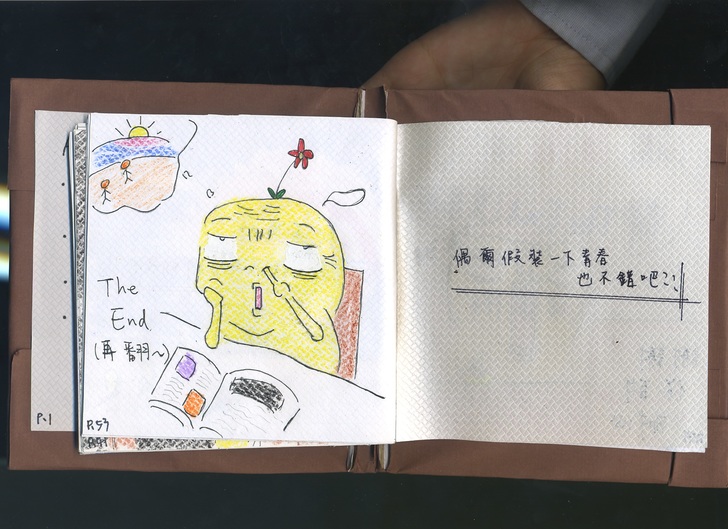 The
End
(再翻~)
P.1
P.53
偶爾假裝一下青春
也不錯吧?!